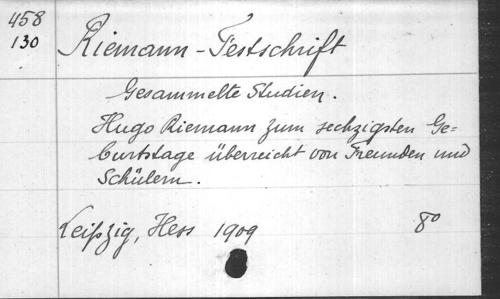 458
130
Riemann-Festschrift
Gesammelte Studien.
Hugo Riemann zum sechzigsten Ge=
burtstage überreicht von Freunden und
Schülern.
Leipzig, Hess 1909 8°